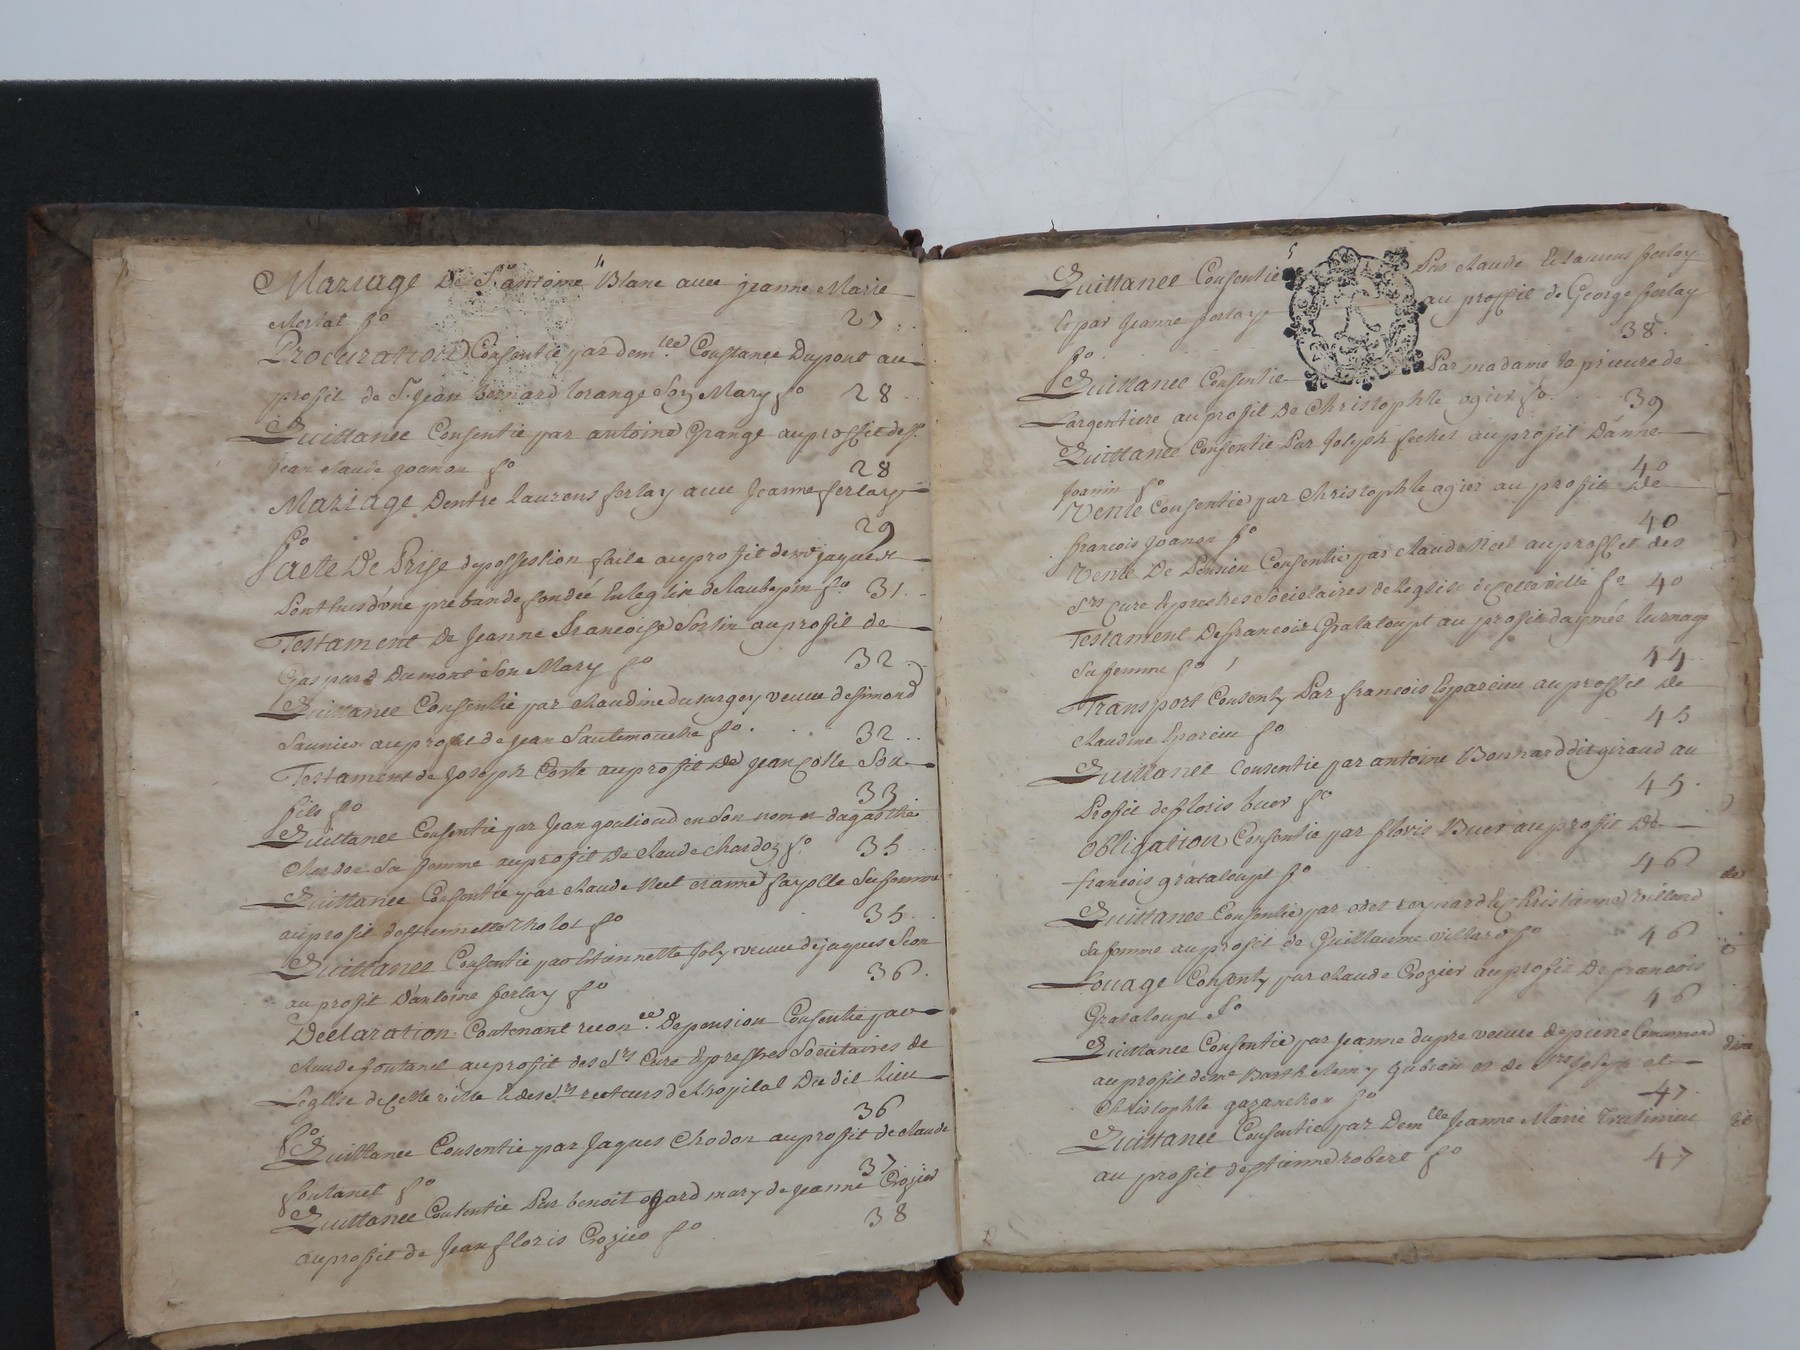 Mariage De Sr antoine Blanc avec jeanne Marie
Merlat fo 27
Procuration Consentie par demlle Constance Dupont au
profit de Sr jean bernard lorange Son Mary fo 28
Quittance Consentie par antoine Grange au proffit de Sr
jean claude joanon fo 28
Mariage Dentre laurens ferlay avec jeanne ferlay
fo 29
acte De Prise de possession faite au profit de mre jaques
Ponthus d'une prebande fondée En leglise de laubepin fo 31
Testament De jeanne francoise Sortin au profit de
Gaspard Dumont Son Mary fo 32
Quittance Consentie par claudine du surgey veuve de simond
Saunier au profit de jean Sautemouche fo 32
Testament de joseph Coste au profit De jean Coste Son
fils fo 33
Quittance Consentie par jean goulioud en Son nom et dagathe
Chardon Sa femme au profit De claude chardon fo 35
Quittance Consentie par claude Neel et anne fayolle Sa femme
au profit destiennette Cholot fo 35
Quittance Consentie par Estiennette joly veuve de jaques Seon
au profit D'antoine ferlay fo 36
Declaration Contenant reconce De pension Consentie par
claude fontanel au profit des Srs Cure Et prestres Societaires de
Leglise de Cette ville Et des Srs recteurs de lhopital Du dit lieu
fo 36
Quittance Consentie par jaques Chodon au profit de claude
fontanel fo 37
Quittance Consentie Par benoit ogard mary de jeanne Crozier
au profit de jean floris Crozier fo 38
Quittance Consentie Par claude Et laurens ferlay
Et par jeanne ferlay au proffit de George ferlay
fo 38
Quittance Consentie Par madame la prieure de
Largentiere au profit De christophle ogier fo 39
Quittance Consentie Par joseph fecher au profit D'anne
joanin fo 40
Vente Consentie par christophle agier au profit De
francois joanon fo 40
Vente De Pension Consentie par claude Neel au proffit des
Srs Cure Et prestres Societaires de leglise de Cette ville fo 40
Testament De francois Grataloupt au profit d'aymée lurnage
Sa femme fo 44
Transport Consenty Par francois Eparcieu au proffit De
claudine Eparcieu fo 45
Quittance Consentie par antoine Bonnard dit giraud au
Profit de floris buer fo 45
Obligation Consentie par floris Buer au profit De
francois grataloupt fo 46
Quittance Consentie par odet reynard Et Christianne villard
Sa femme au profit de Guillaume villard fo 46
Louage Consenty par claude Crozier au profit De francois
Grataloupt fo 46
Quittance Consentie par jeanne dupre veuve de pierre Commarmond
au profit de me Barthelemy gubian et de mre joseph et
Christophle gazanchon fo 47
Quittance Consentie par Demlle jeanne Marie
au profit destienne robert fo 47